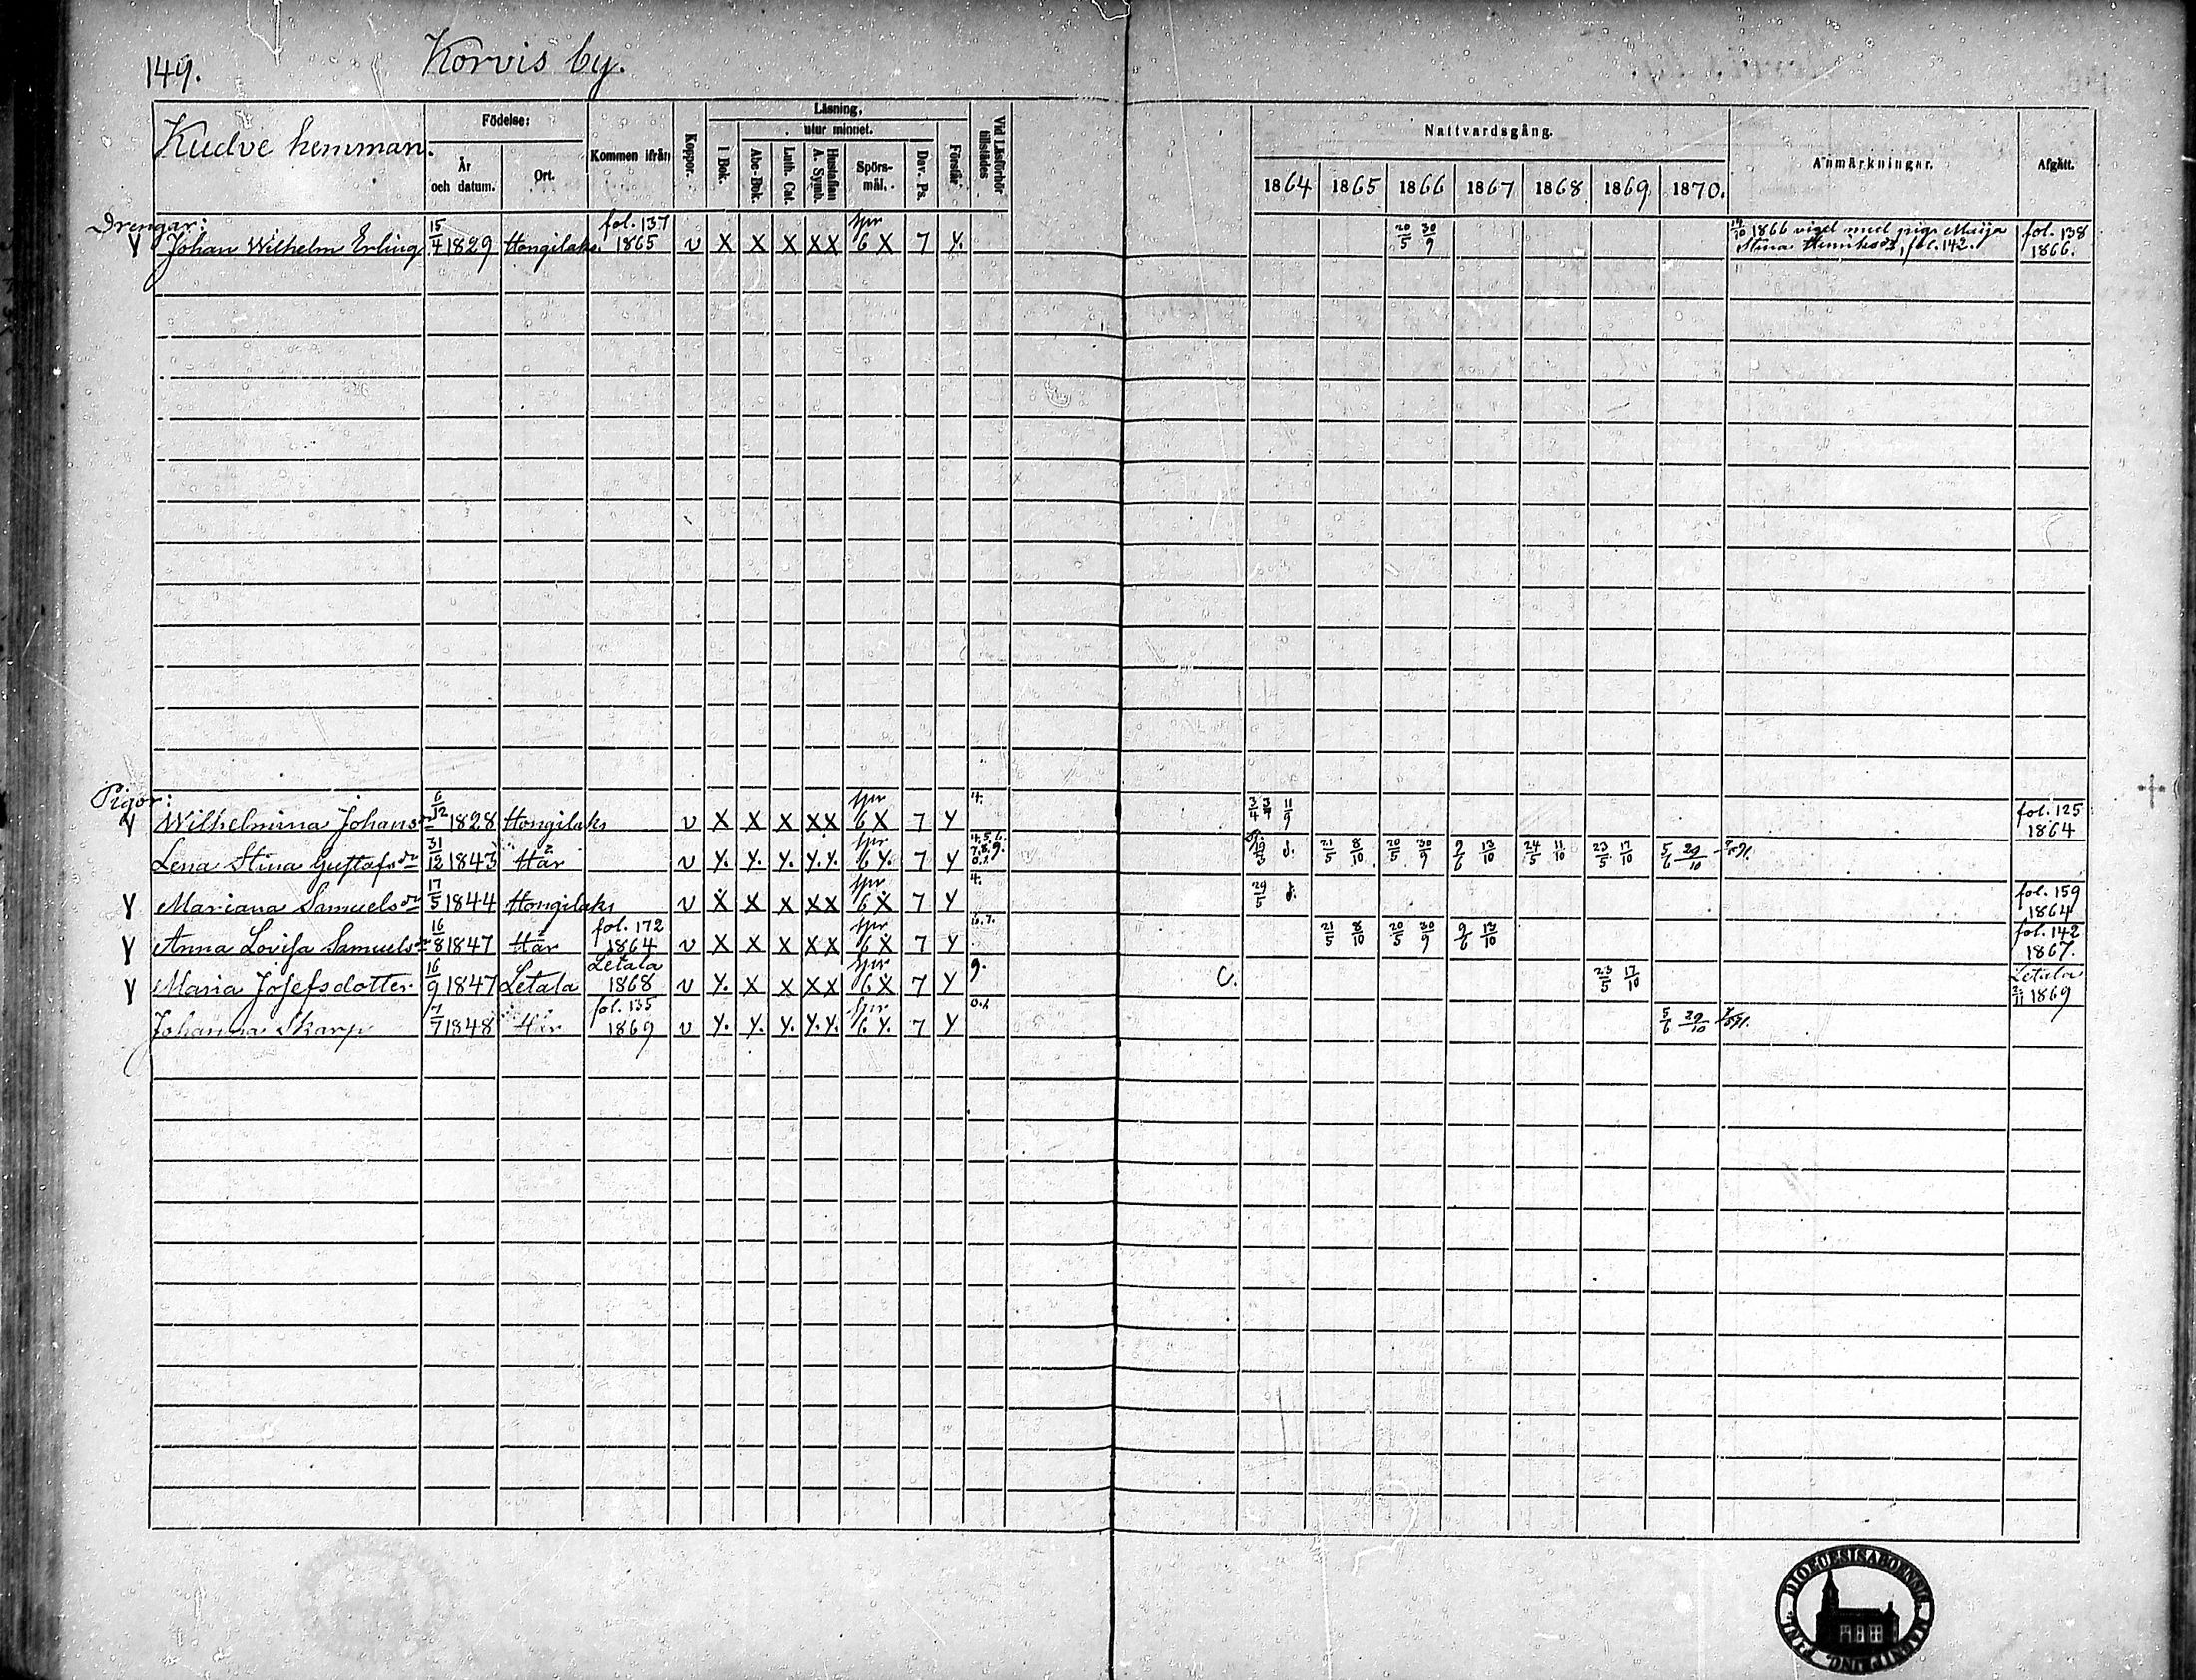 149.
Korvis by.
Kudve hemman.
Födelse:
År och datum.
Ort.
Kommen ifrån
Koppor.
Läsning,
utur minnet.
I Bok.
Abc-Bok.
Luth. Cat.
Hustaflan A. Symb.
Spörs-mål.
Dav. Ps.
Förstår
Vid Läsförhör tillstädes
Nattvardsgång.
1864 1865 1866 1867 1868 1869 1870.
Anmärkningar.
Afgått.
Drengar:
Y Johan Wilhelm Erling 15/4 1829 Hongilaks. fol. 137 1865 v X X X XX spr 6 X 7 Y. 20/5 30/9 1866 vigd med pigan Maija Stina Henriksdr, fol. 142. fol. 138 1866.
Pigor:
Y Wilhelmina Johansdr 6/12 1828 Hongilaks v X X X XX spr 6 X 7 Y 4. 11/9 fol. 125 1864
Lena Stina Gustafsdr 31/12 1843 Här v Y. Y. Y. Y.Y. spr 6 Y. 7 Y 4.5.6. 7.8.9. 0.1. d. 21/5 8/10 20/5 30/9 9/6 13/10 24/5 11/10 23/5 17/10 5/6 29/10
Y Mariana Samuelsdr 17/5 1844 Hongilaks v X X X XX spr 6 X 7 Y 4. 29/5 d. fol. 159 1864
Y Anna Lovisa Samuelsdr 16/8 1847 Här fol. 172 1864 v X X X XX spr 6 X 7 Y 6.7. 21/5 8/10 20/5 30/9 9/6 13/10 fol. 142 1867.
Y Maria Josefsdotter 16/9 1847 Letala Letala 1868 v Y. X X XX spr 6 X 7 Y 9. C. 23/5 17/10 Letala 1869
Johanna Skarp 7/7 1848 Här fol. 135 1869 v Y. Y. Y. Y.Y. spr 6 Y. 7 Y 0.1. 5/6 29/10